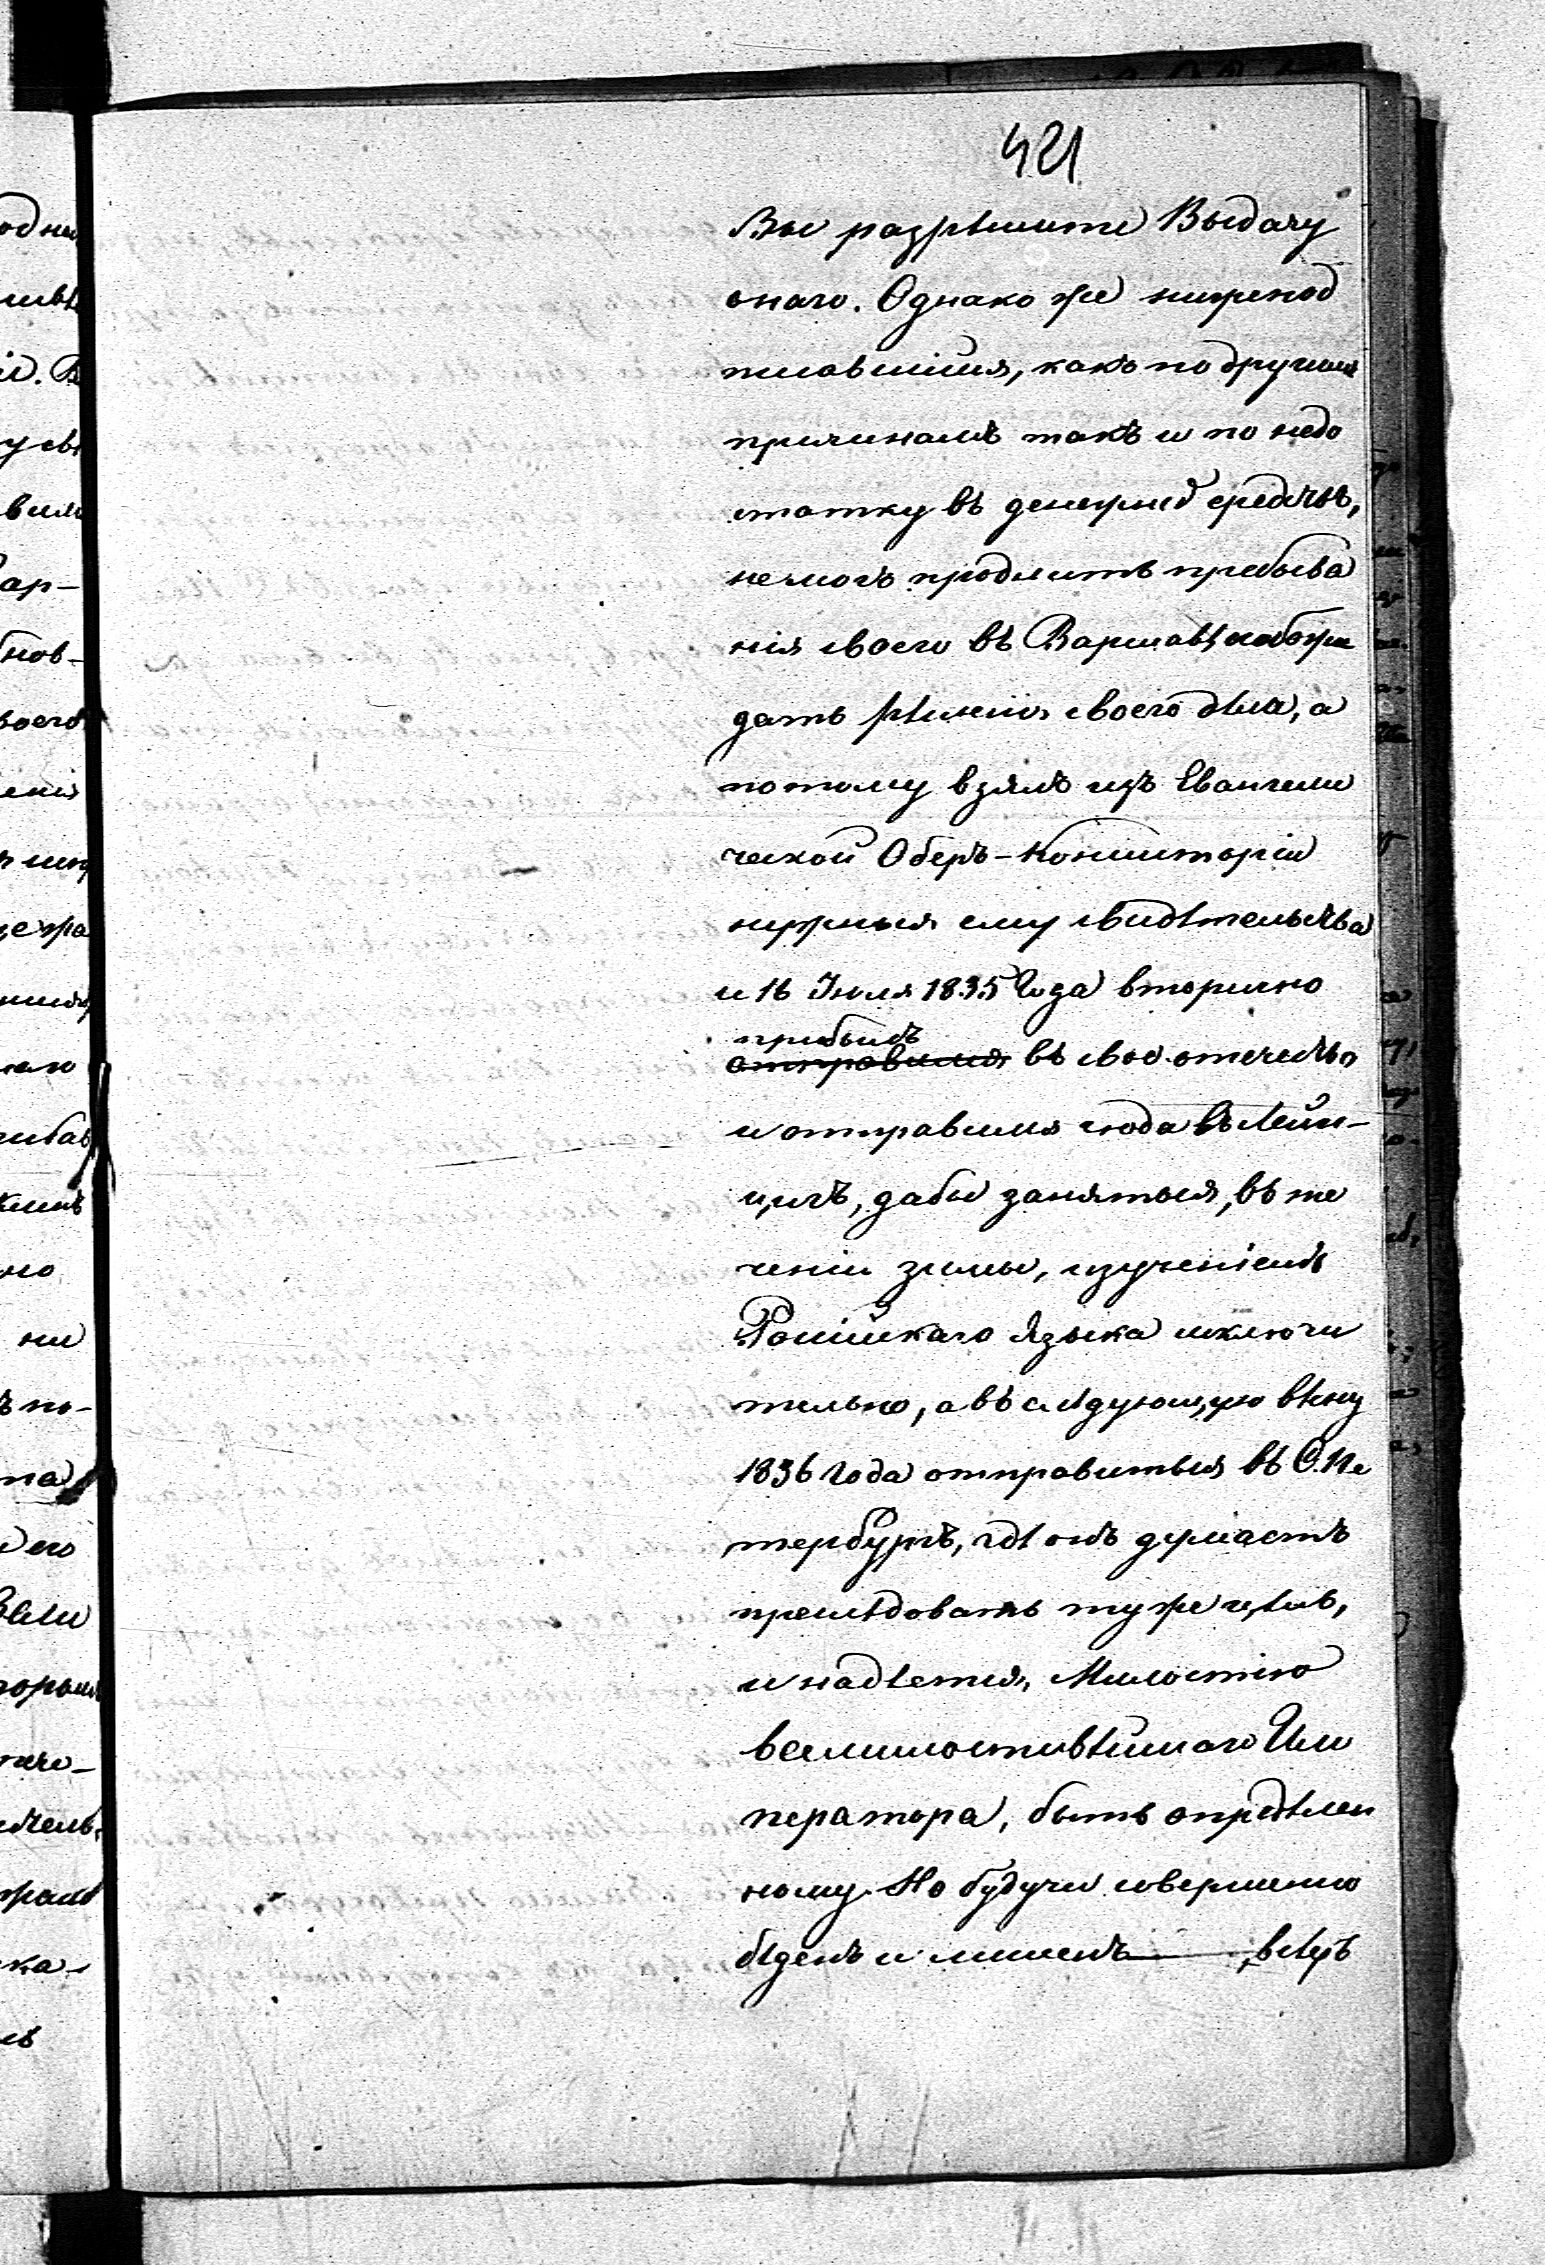 421
Вы разрѣшите Выдачу
онаго. Однако же нижепод
писавшійся, какъ по другимъ
причинамъ такъ и по недо
статку въ денежнѣ средствъ,
не могъ продлить пребыва
нія своего въ Варшавѣ и обож
дать рѣшенія своего дѣла, а
потому взялъ изъ Евангели
ческой Оберъ-Консисторіи
нужныя ему свидѣтельства
и 16 Іюля 1835 Года вторично
прибылъ
отправился въ свое отечество
и отправился сюда въ Лейп-
цигъ, дабы заняться, въ те
ченіи зимы, изученіемъ
Россійскаго Языка исключи
тельно, а въ слѣдующую весну
1836 Года отправиться въ С. Пе
тербургъ, гдѣ онъ думаетъ
преслѣдовать туже цѣль,
и надѣется, Милостію
всемилостивѣйшаго Им
ператора, быть опредѣлен
ному. Но будучи совершенно
бѣденъ и лишенъ всѣхъ